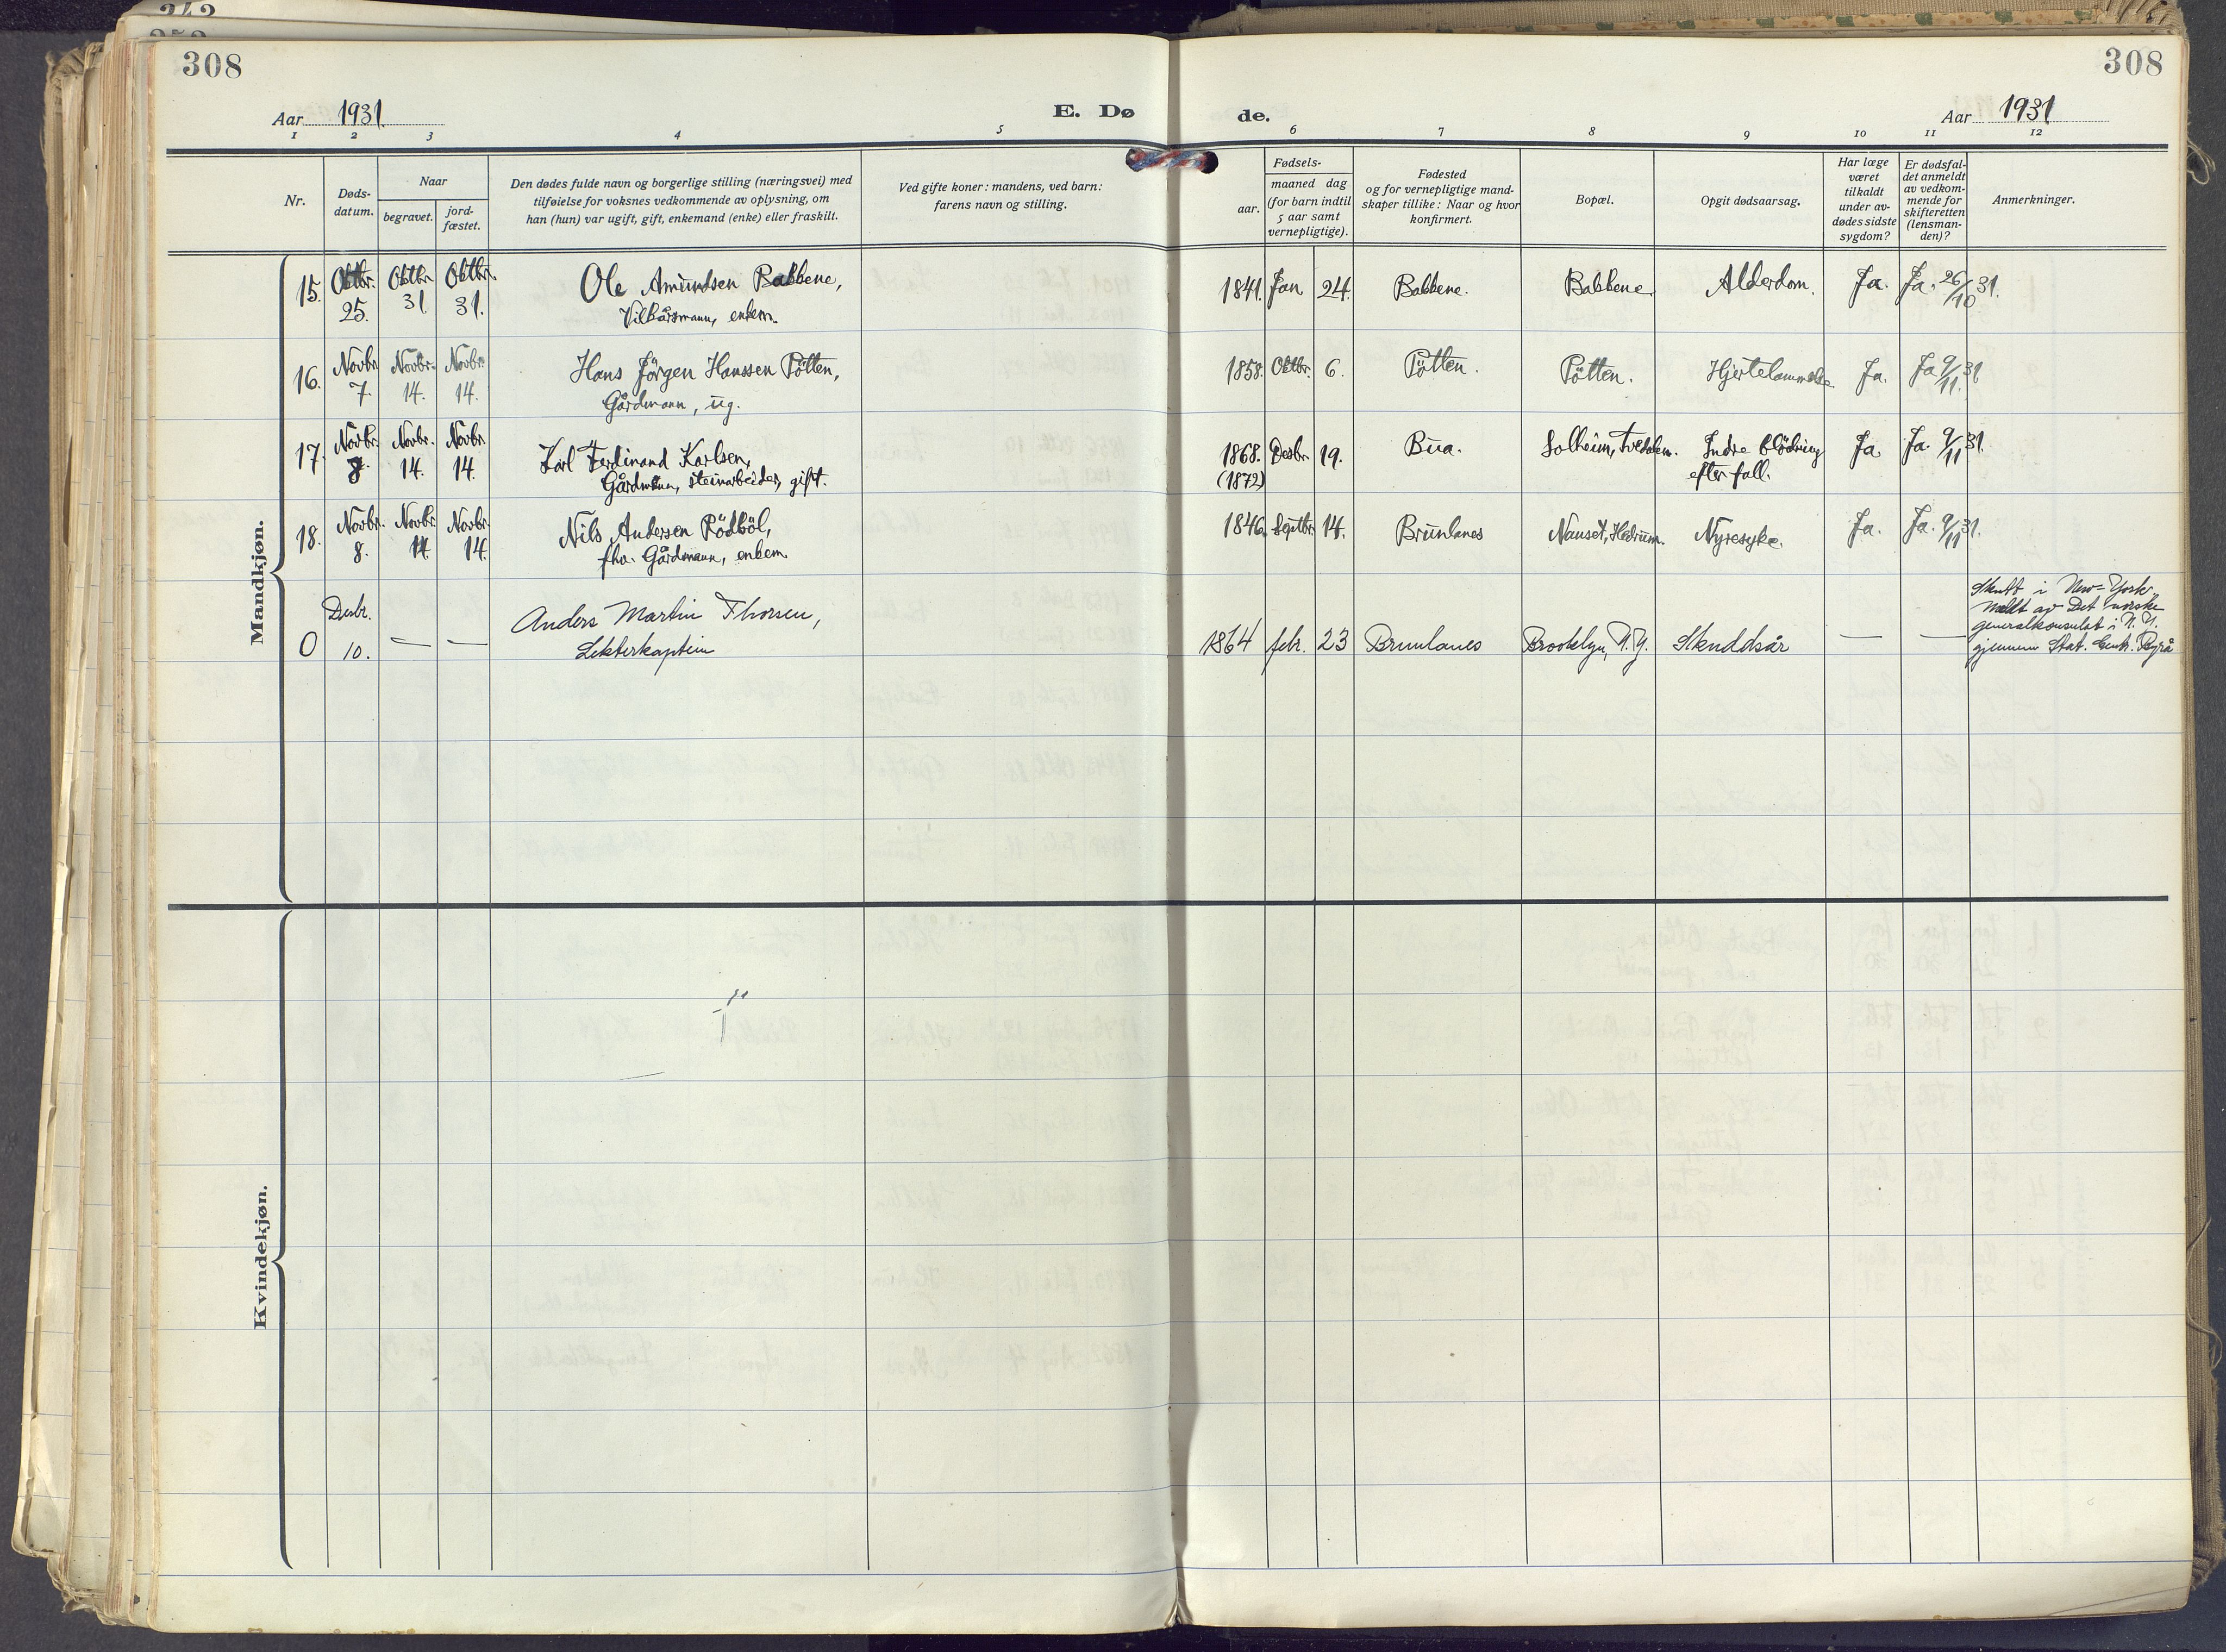 308
308
Aar 1931.
E. Dø
de.
Aar 1931
1 2 3 4 5 6 7 8 9 10 11 12
Nr.
Døds-
datum.
Naar
begravet.
jord-
fæstet.
Den dødes fulde navn og borgerlige stilling (næringsvei) med
tilføielse for voksnes vedkommende av oplysning, om
han (hun) var ugift, gift, enkemand (enke) eller fraskilt.
Ved gifte koner: mandens, ved barn:
farens navn og stilling.
Fødsels-
aar.
maaned dag
(for barn indtil
5 aar samt
vernepligtige).
Fødested
og for vernepligtige mand-
skaper tillike: Naar og hvor
konfirmert.
Bopæl.
Opgit dødsaarsag.
Har læge
været
tilkaldt
under av-
dødes sidste
sygdom?
Er dødsfal-
det anmeldt
av vedkom-
mende for
skifteretten
(lensman-
den)?
Anmerkninger.
Mandkjøn.
15. Oktbr. 25. Oktbr. 31. Oktbr. 31. Ole Amundsen Bakkene, 1841. Jan. 24. Bakkene. Bakkene. Alderdom. Ja. Ja. 26/10 31.
Vilkårsmann, enkem.
16. Novbr. 7. Novbr. 14. Novbr. 14. Hans Jörgen Hanssen Pötten, 1858. Oktbr. 6. Pötten. Pötten. Hjertelammelse. Ja. Ja 9/11. 31
Gårdmann, ug.
17. Novbr. 8. Novbr. 14. Novbr. 14. Karl Ferdinand Karlsen, 1868. Desbr. 19. Bua. Solheim, Tvedalen. Indre blödning Ja Ja. 9/11 31.
Gårdmann, steinarbeider, gift. (1872) efter fall.
18. Novbr. 8. Novbr. 14. Novbr. 14. Nils Andersen Rödböl, 1846. Septbr. 14. Brunlanes Nauset, Hedrum. Nyresyke. Ja. Ja. 9/11 31.
fhv. Gårdmann, enkem.
0 Desbr. 10. — — Anders Martin Thorsen, 1864 febr. 23 Brunlanes Brooklyn, N.Y. Skuddsår — —
Lekterkaptein
Skutt i New-York.
Meldt av Det norske
generalkonsulat i N.Y.
gjennem Stat. Sentr. Byrå
Kvindekjøn.